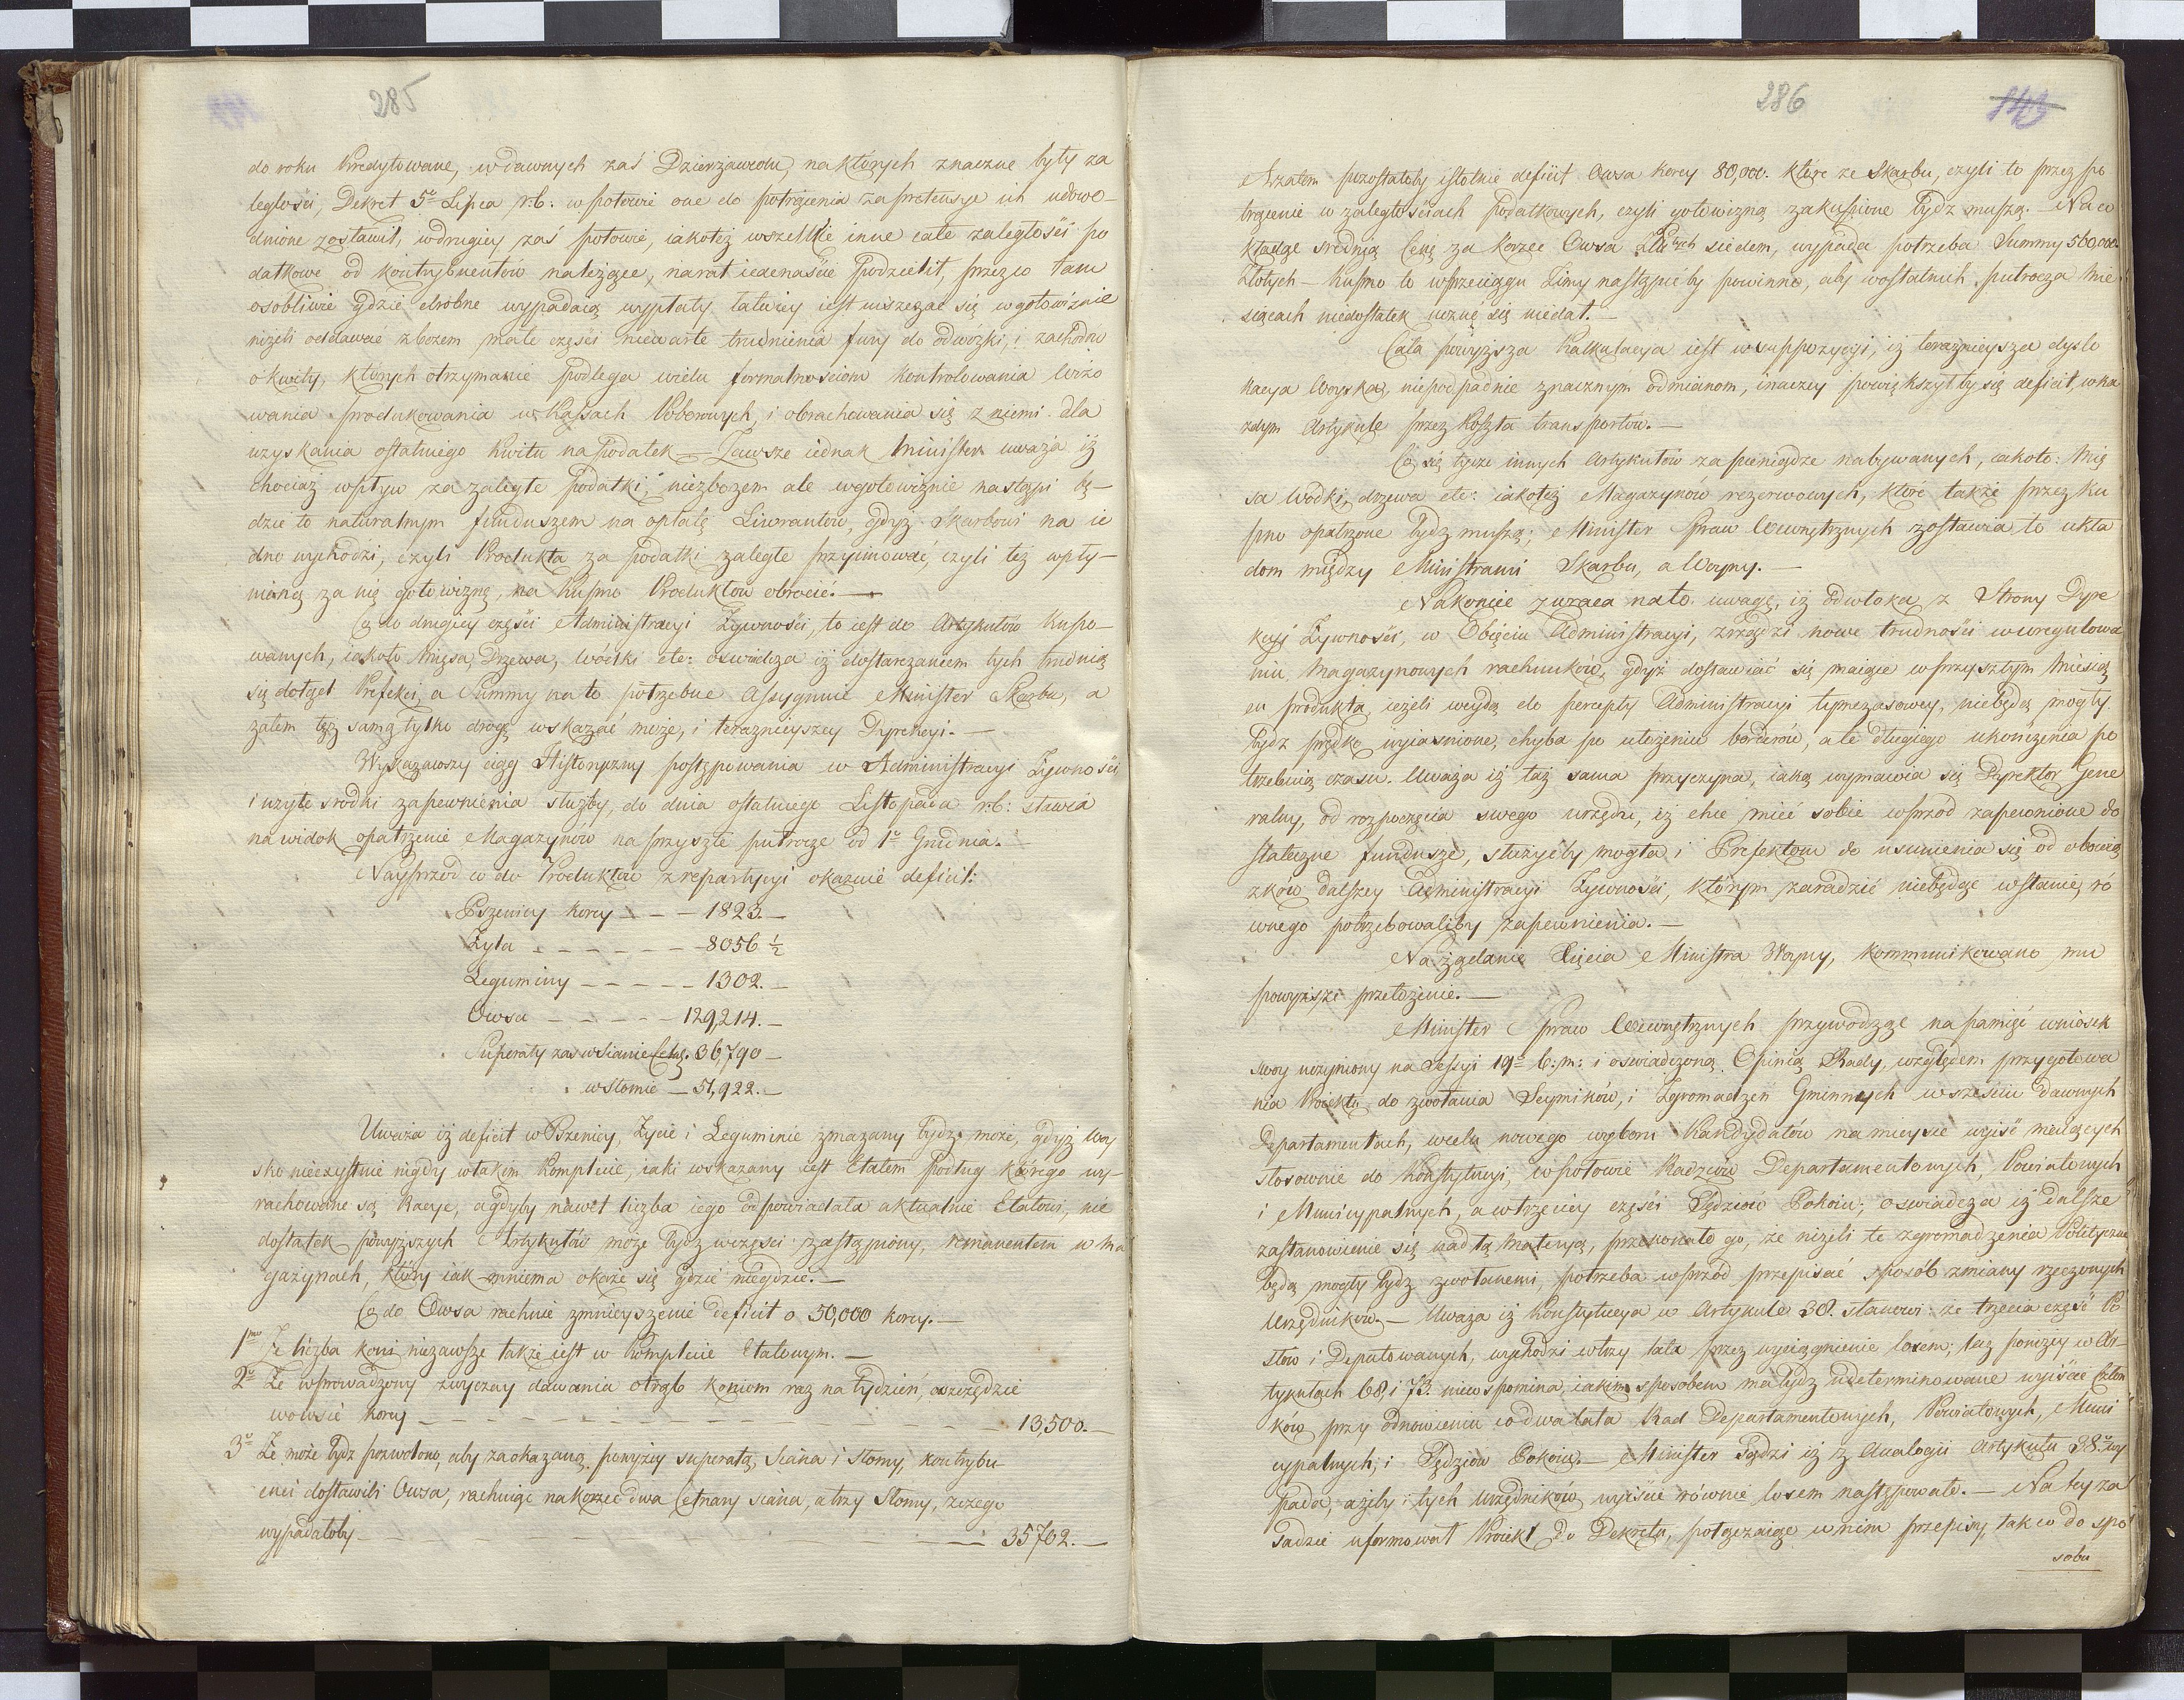 285
do roku kredytowane, w dawnych zaś Dzierżawcom, na których znaczne były za
ległości, Dekret 5º Lipca r.b: w połowie one do potrącenia za pretensye ich udowo-
dnione zostawił, w drugiey zaś połowie, iakoteż wszelkie inne całe zaległości po
datkowe od kontrybuentów należące, na rat iedenaście podzielił, przez co tam
osobliwie gdzie drobne wypadaią wypłaty łatwiey iest uiszczać się w gotowiznie
niżeli oddawać zbożem małe części niewarte trudnienia fury do odwózki, i zachodu
o kwity, których otrzymanie podlega wielu formalnościom kontrolowania wizo
wania produkowania w Kassach Poborowych, i obrachowania się z niemi dla
uzyskania ostatniego kwitu na podatek — Zawsze iednak Minister uważa iż
chociaż wpływ za zaległe podatki, nie zbożem ale w gotowiznie nastąpi bę-
dzie to naturalnym funduszem na opłatę Liwrantów, gdyż Skarbowi na ie
dno wychodzi, czyli Produkta za podatki zaległe przyimować, czyli też wpły-
nioną za nię gotowiznę, na kupno Produktów obrócić. —
Co do drugiey części Administracyi Żywności, to iest do Artykułów kupo-
wanych, iakoto Mięsa, Drzewa, Wódki etc: oświadcza iż dostarczaniem tych trudnią
się dotąd Prefekci, a Summy na to potrzebne Assygnuie Minister Skarbu, a
zatem tęż samą tylko drogę wskazać może, i teraznieyszey Dyrekcyi. —
Wykazawszy ciąg Historyczny postępowania w Administracyi Żywności
i użyte srodki zapewnienia służby, do dnia ostatniego Listopada r.b: stawia
na widok opatrzenie Magazynów na przyszłe pułrocze od 1º Grudnia. —
Nayprzód co do Produktów z repartycyi okazuie deficit:
Pszenicy korcy - - - 1823.—
Żyta - - - - - - 8056 ½
Leguminy - - - - - 1302.—
Owsa - - - - - 129,214.—
Superaty zaś w Sianie Cetn: 36,790 —
w Słomie — 51,922.—
Uważa iż deficit w Pszenicy, Życie i Leguminie zmazany bydz może, gdyż Woy
sko nieczystnie nigdy w takim komplecie, iaki wskazany iest Etatem podług którego wy-
rachowane są Racye, a gdyby nawet liczba iego odpowiadała aktualnie Etatowi, nie
dostatek powyższych Artykułów może bydz w części zastąpiony, remanentem w ma
gazynach, który iak mniema okaże się gdzie niegdzie. —
Co do Owsa rachuie zmnieyszenie deficit o 50,000 korcy. —
1mo Że liczba koni niezawsze także iest w komplecie Etatowym. —
2º Że wprowadzony zwyczay dawania otrąb koniom raz na tydzień, oszczędzie
w owsie korcy - - - - - - 13,500.—
3º Że może bydz pozwolono, aby za okazaną powyżey superatę, Siana i Słomy, kontrybu
enci dostawili Owsa, rachuiąc na korzec dwa Cetnary siana, a trzy Słomy, z czego
wypadałoby - - - - - - 35702.—
286
143
A zatem pozostałoby istotnie deficit Owsa korcy 80,000. które ze Skarbu, czyli to przez po
trącenie w zaległościach podatkowych, czyli gotowizną zakupione bydz muszą. — Na co
kładąc srednią Cenę za korzec Owsa Złotych siedem, wypada potrzeba Summy 560,000
Złotych — Kupno to w przeciągu Zimy nastąpićby powinno, aby w ostatnich pułrocza Mie
siącach niedostatek uczuć się niedał. —
Cała powyższa kalkulacya iest w suppozycyi, iż teraźnieysza dyslo
kacya Woyska, niepodpadnie znacznym odmianom, inaczey powiększyłby się deficit, w ka
żdym Artykule przez koszta transportów. —
Co się tycze innych Artykułów za pieniądze nabywanych, iakoto: Mię
sa wódki, drzewa etc: iakoteż Magazynów rezerwowych, które także przez ku
pno opatrzone bydz muszą; Minister Spraw Wewnętrznych zostawia to ukła
dom między Ministrami Skarbu, a Woyny. —
Nakoniec zwraca na to uwagę, iż odwłoka z Strony Dyre
kcyi Żywności, w Obięciu Administracyi, zrządzi nowe trudności w uregulowa
niu Magazynowych rachunków, gdyż dostawiać się maiące w przyszłym Miesią
cu produkta, ieżeli weydą do percepty Administracyi tymczasowey, niebędą mogły
bydz prędko wyiasnione, chyba po ułożeniu borderów, ale długiego ukończenia po
trzebuią czasu. Uważa iż taż sama przyczyna, iaką wymawia się Dyrektor Gene
ralny, od rozpoczęcia swego urzędu, iż chce mieć sobie wprzód zapewnione do
stateczne fundusze, służyćby mogła i Prefektom do usunienia się od obowią
zków dalszey Administracyi Żywności, którym zaradzić niebędąc w stanie, ró
wnego potrzebowaliby zapewnienia. —
Na żądanie Xięcia Ministra Woyny, kommunikowano mu
powyższe przełożenie. —
Minister Spraw Wewnętrznych przywodząc na pamięć wniosek
swoy uczyniony na Sessyi 19º b:m: i oświadczoną Opinią Rady, względem przygotowa
nia Proiektu do zwołania Seymików, i Zgromadzeń Gminnych w sześciu dawnych
Departamentach, w celu nowego wyboru Kandydatów na mieysce wyiść maiących
stosownie do Konstytucyi, w połowie Radzców Departamentowych, Powiatowych
i Municypalnych, a w trzeciey części Sędziów Pokoiu; oświadcza iż dalsze
zastanowienie się nad tą Materyą, przekonało go, że niżeli te zgromadzenia Polityczne
będą mogły bydz zwołanemi, potrzeba wprzód przepisać sposób zmiany rzeczonych
Urzędników. — Uważa iż Konstytucya w Artykule 38. stanowi: że trzecia część Po
słów i Deputowanych, wychodzi w trzy lata przez wyciągnienie losem; taż poniżey w Ar-
tykułach 68 i 73. niewspomina, iakim sposobem ma bydz udeterminowane wyiście Człon
ków przy odnowieniu co dwa lata Rad Departamentowych, Powiatowych, Muni
cypalnych, i Sędziów Pokoiu. — Minister Sądzi iż z Analogii Artykułu 38º wy
pada, ażeby i tych Urzędników wyiście równie losem następowało. — Na tey za
sadzie uformował Proiekt do Dekretu, połączaiąc w nim przepisy, tak co do spo
sobu